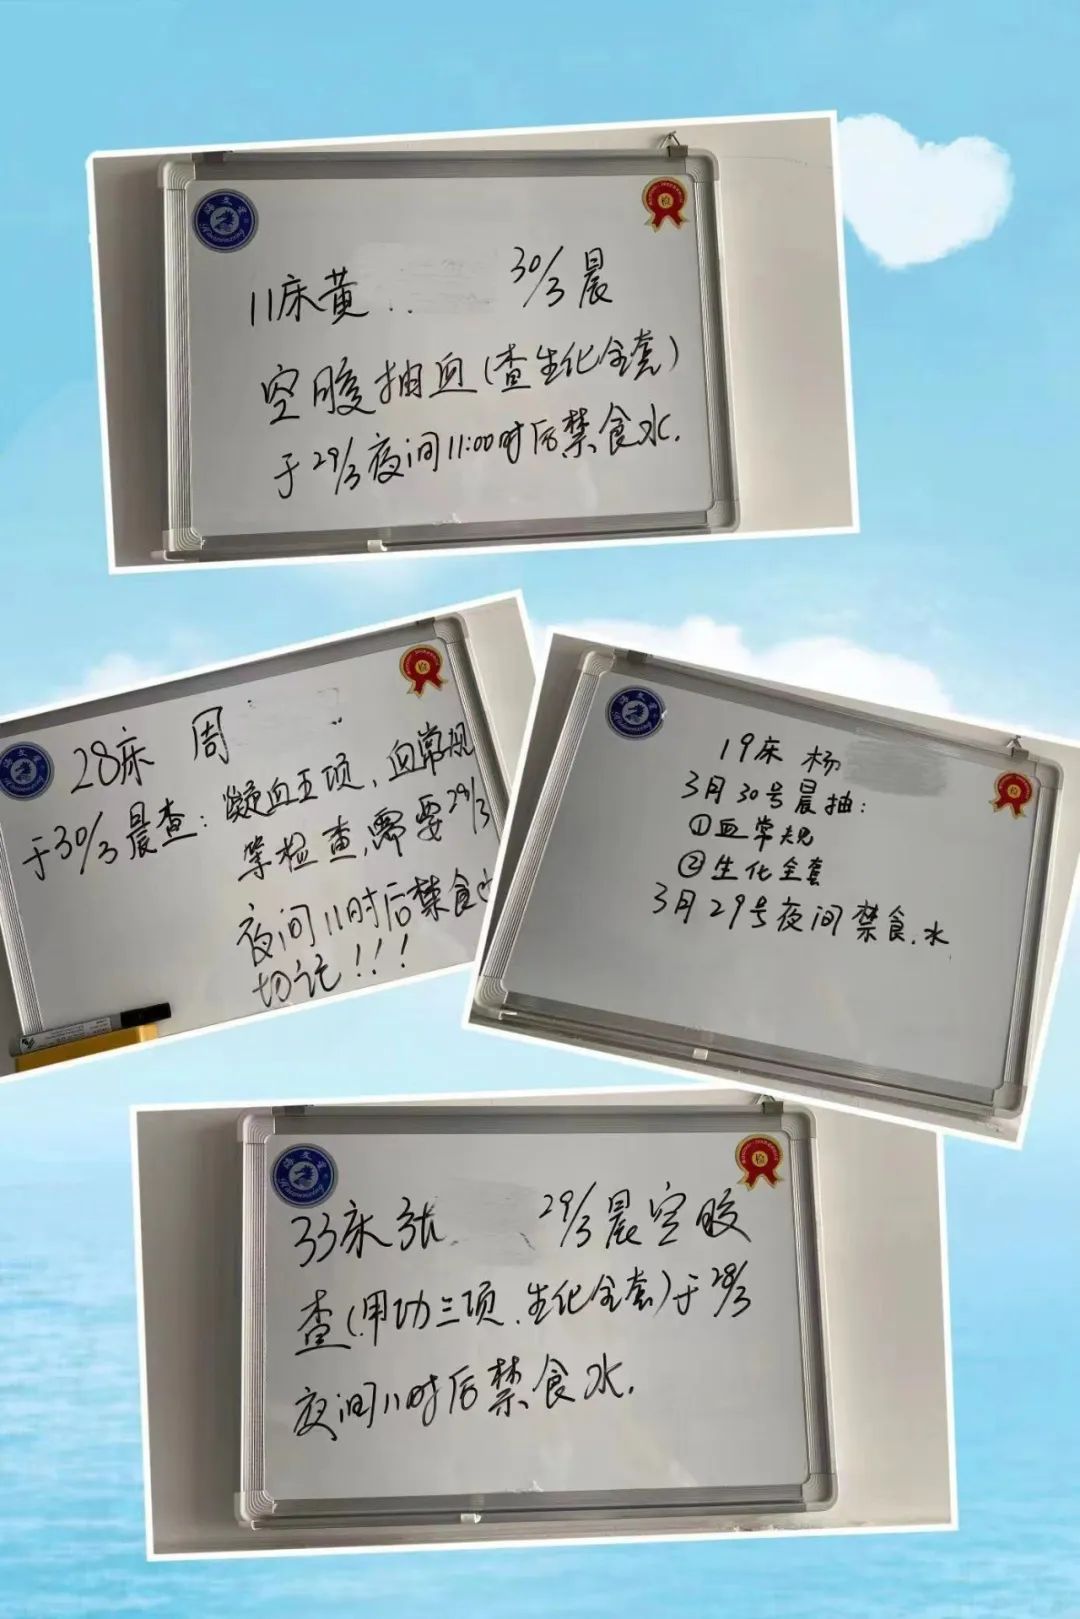 海文星
检
11床黄 30/3晨
空腹抽血(查生化全套)
于29/3夜间11:00时后禁食水.
检
28床 周
于30/3晨查:凝血五项、血常规
等检查,需要29/3
夜间11时后禁食
切记!!!
海文星
检
19床 杨
3月30号晨抽:
①血常规
②生化全套
3月29号夜间禁食.水
海文星
检
33床张 29/3晨空腹
查(甲功三项、生化全套)于28/3
夜间11时后禁食水.